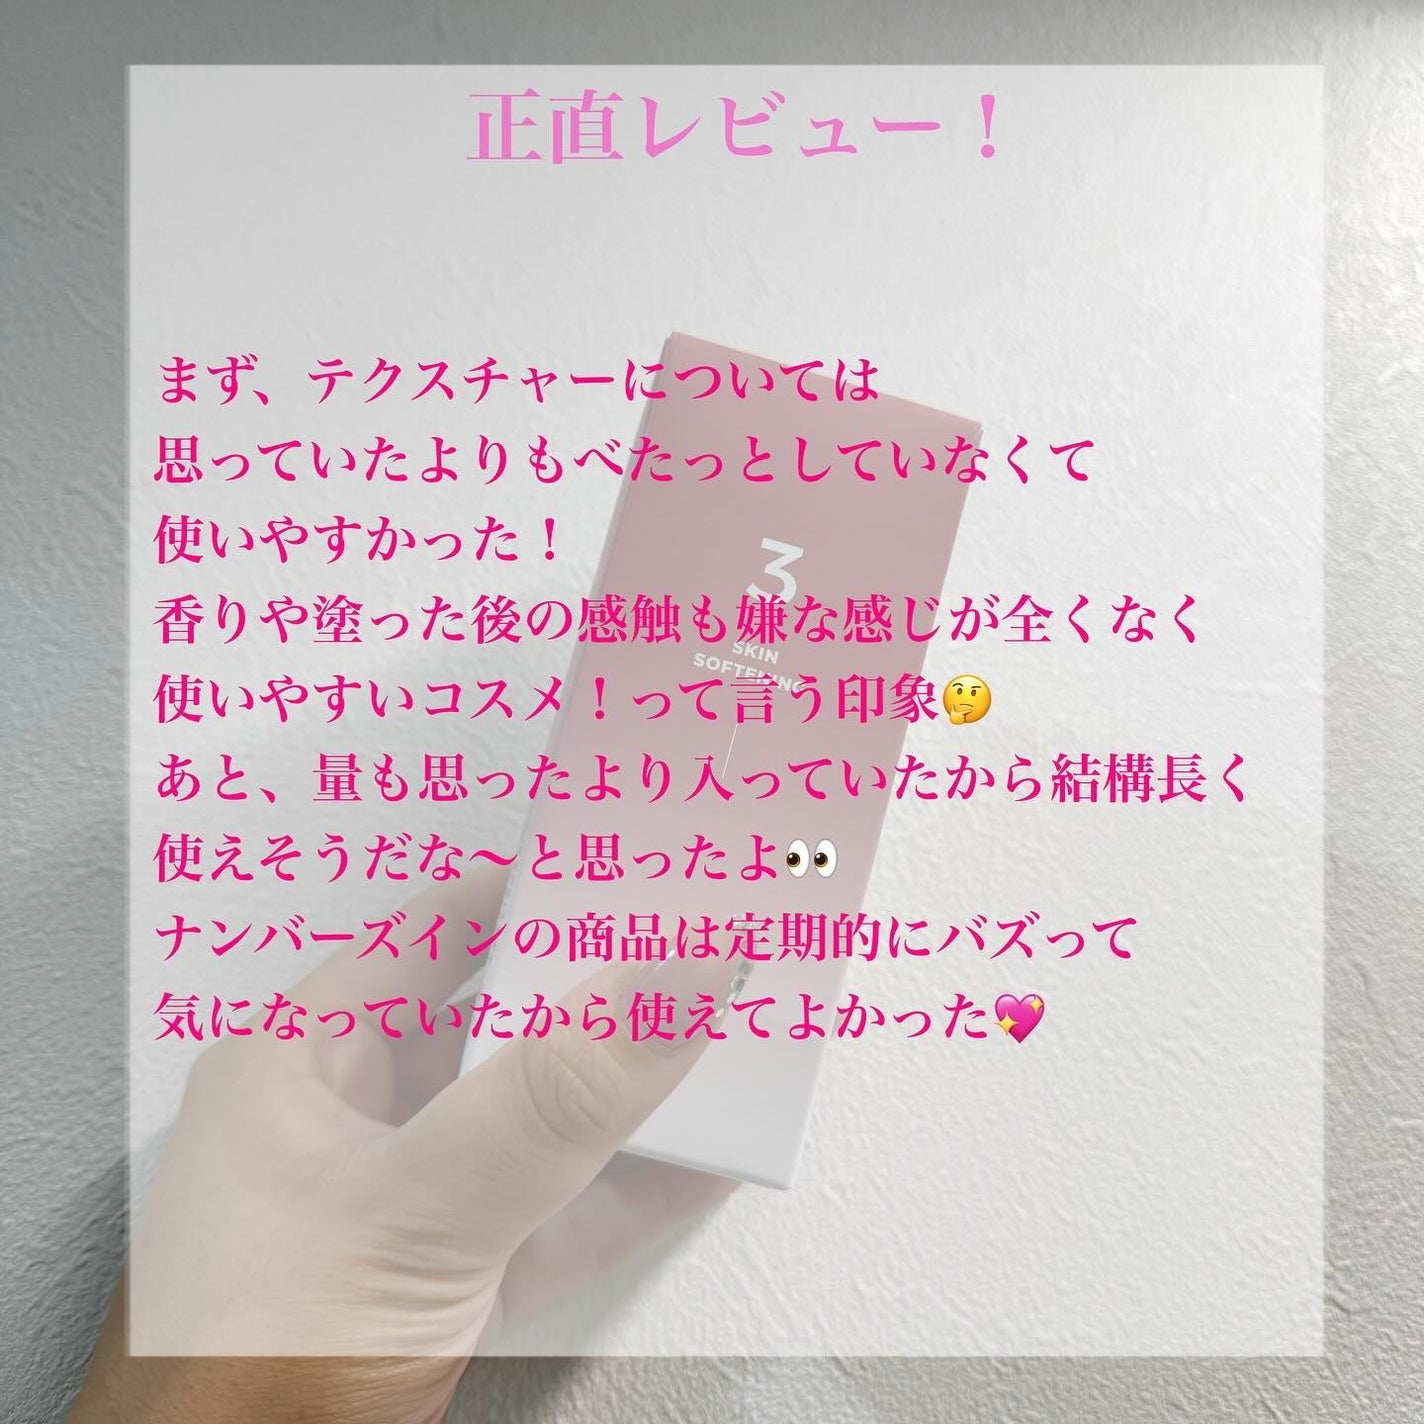 正直レビュー！
まず、テクスチャーについては
思っていたよりもべたっとしていなくて
使いやすかった！
香りや塗った後の感触も嫌な感じが全くなく
使いやすいコスメ！って言う印象🤔
あと、量も思ったより入っていたから結構長く
使えそうだな〜と思ったよ👀
ナンバーズインの商品は定期的にバズって
気になっていたから使えてよかった💖
3
SKIN
SOFTENING